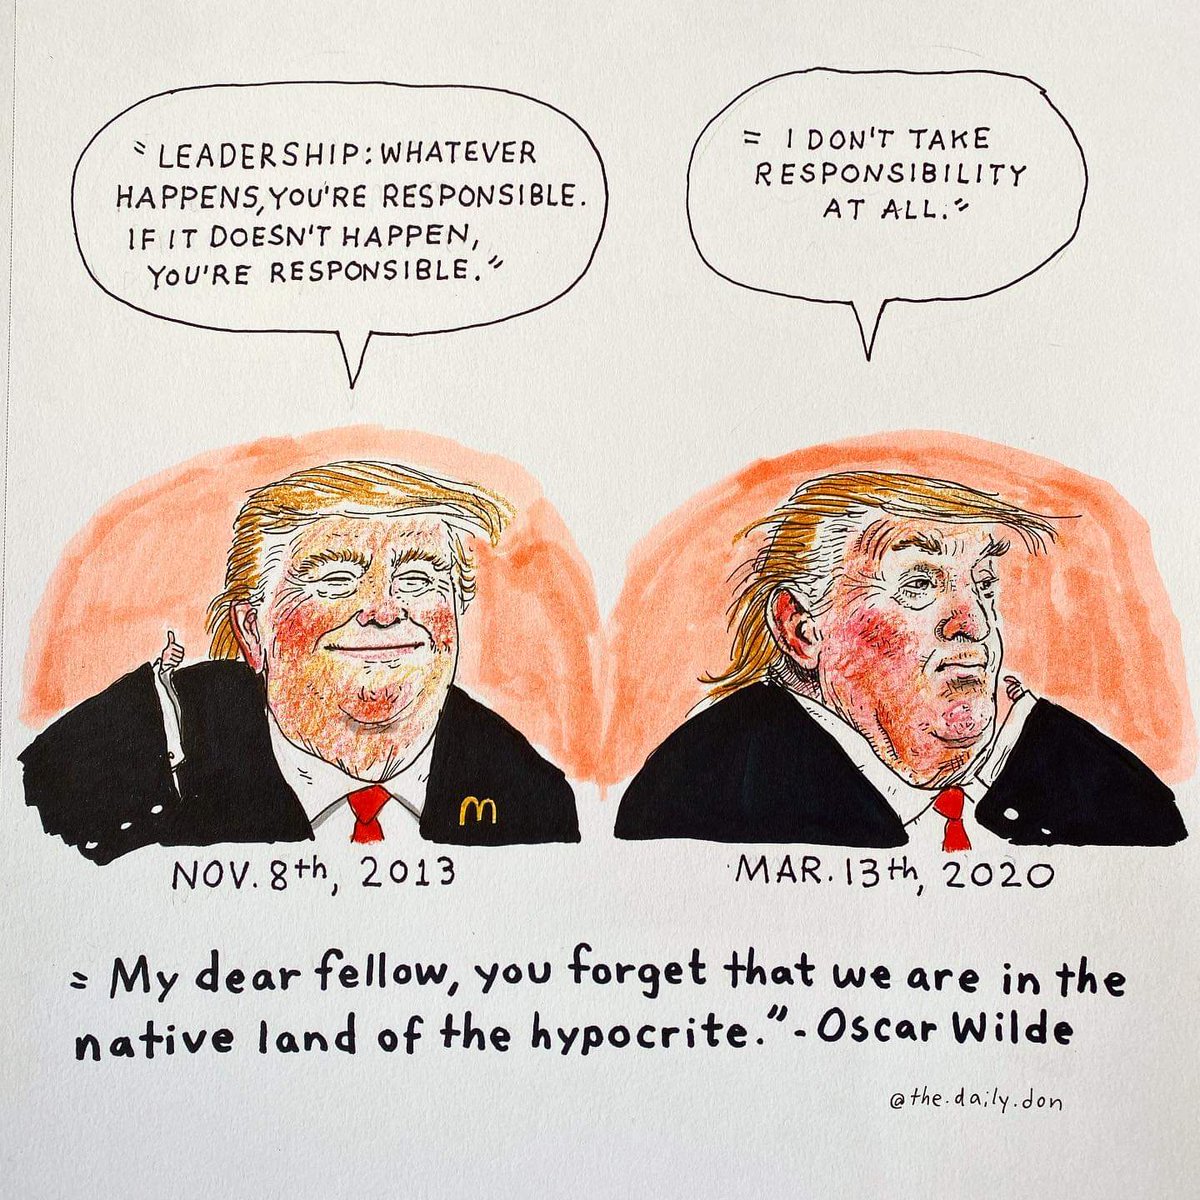 "LEADERSHIP: WHATEVER
HAPPENS, YOU'RE RESPONSIBLE.
IF IT DOESN'T HAPPEN,
YOU'RE RESPONSIBLE."
"I DON'T TAKE
RESPONSIBILITY
AT ALL."
m
NOV. 8th, 2013
MAR. 13th, 2020
"My dear fellow, you forget that we are in the
native land of the hypocrite." - Oscar Wilde
@the.daily.don